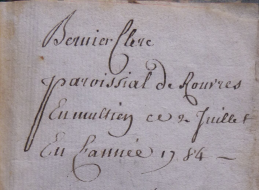 Bernier Clerc
paroissial de Rouvres
En multien ce 2 Juillet
En L'année 1784 —